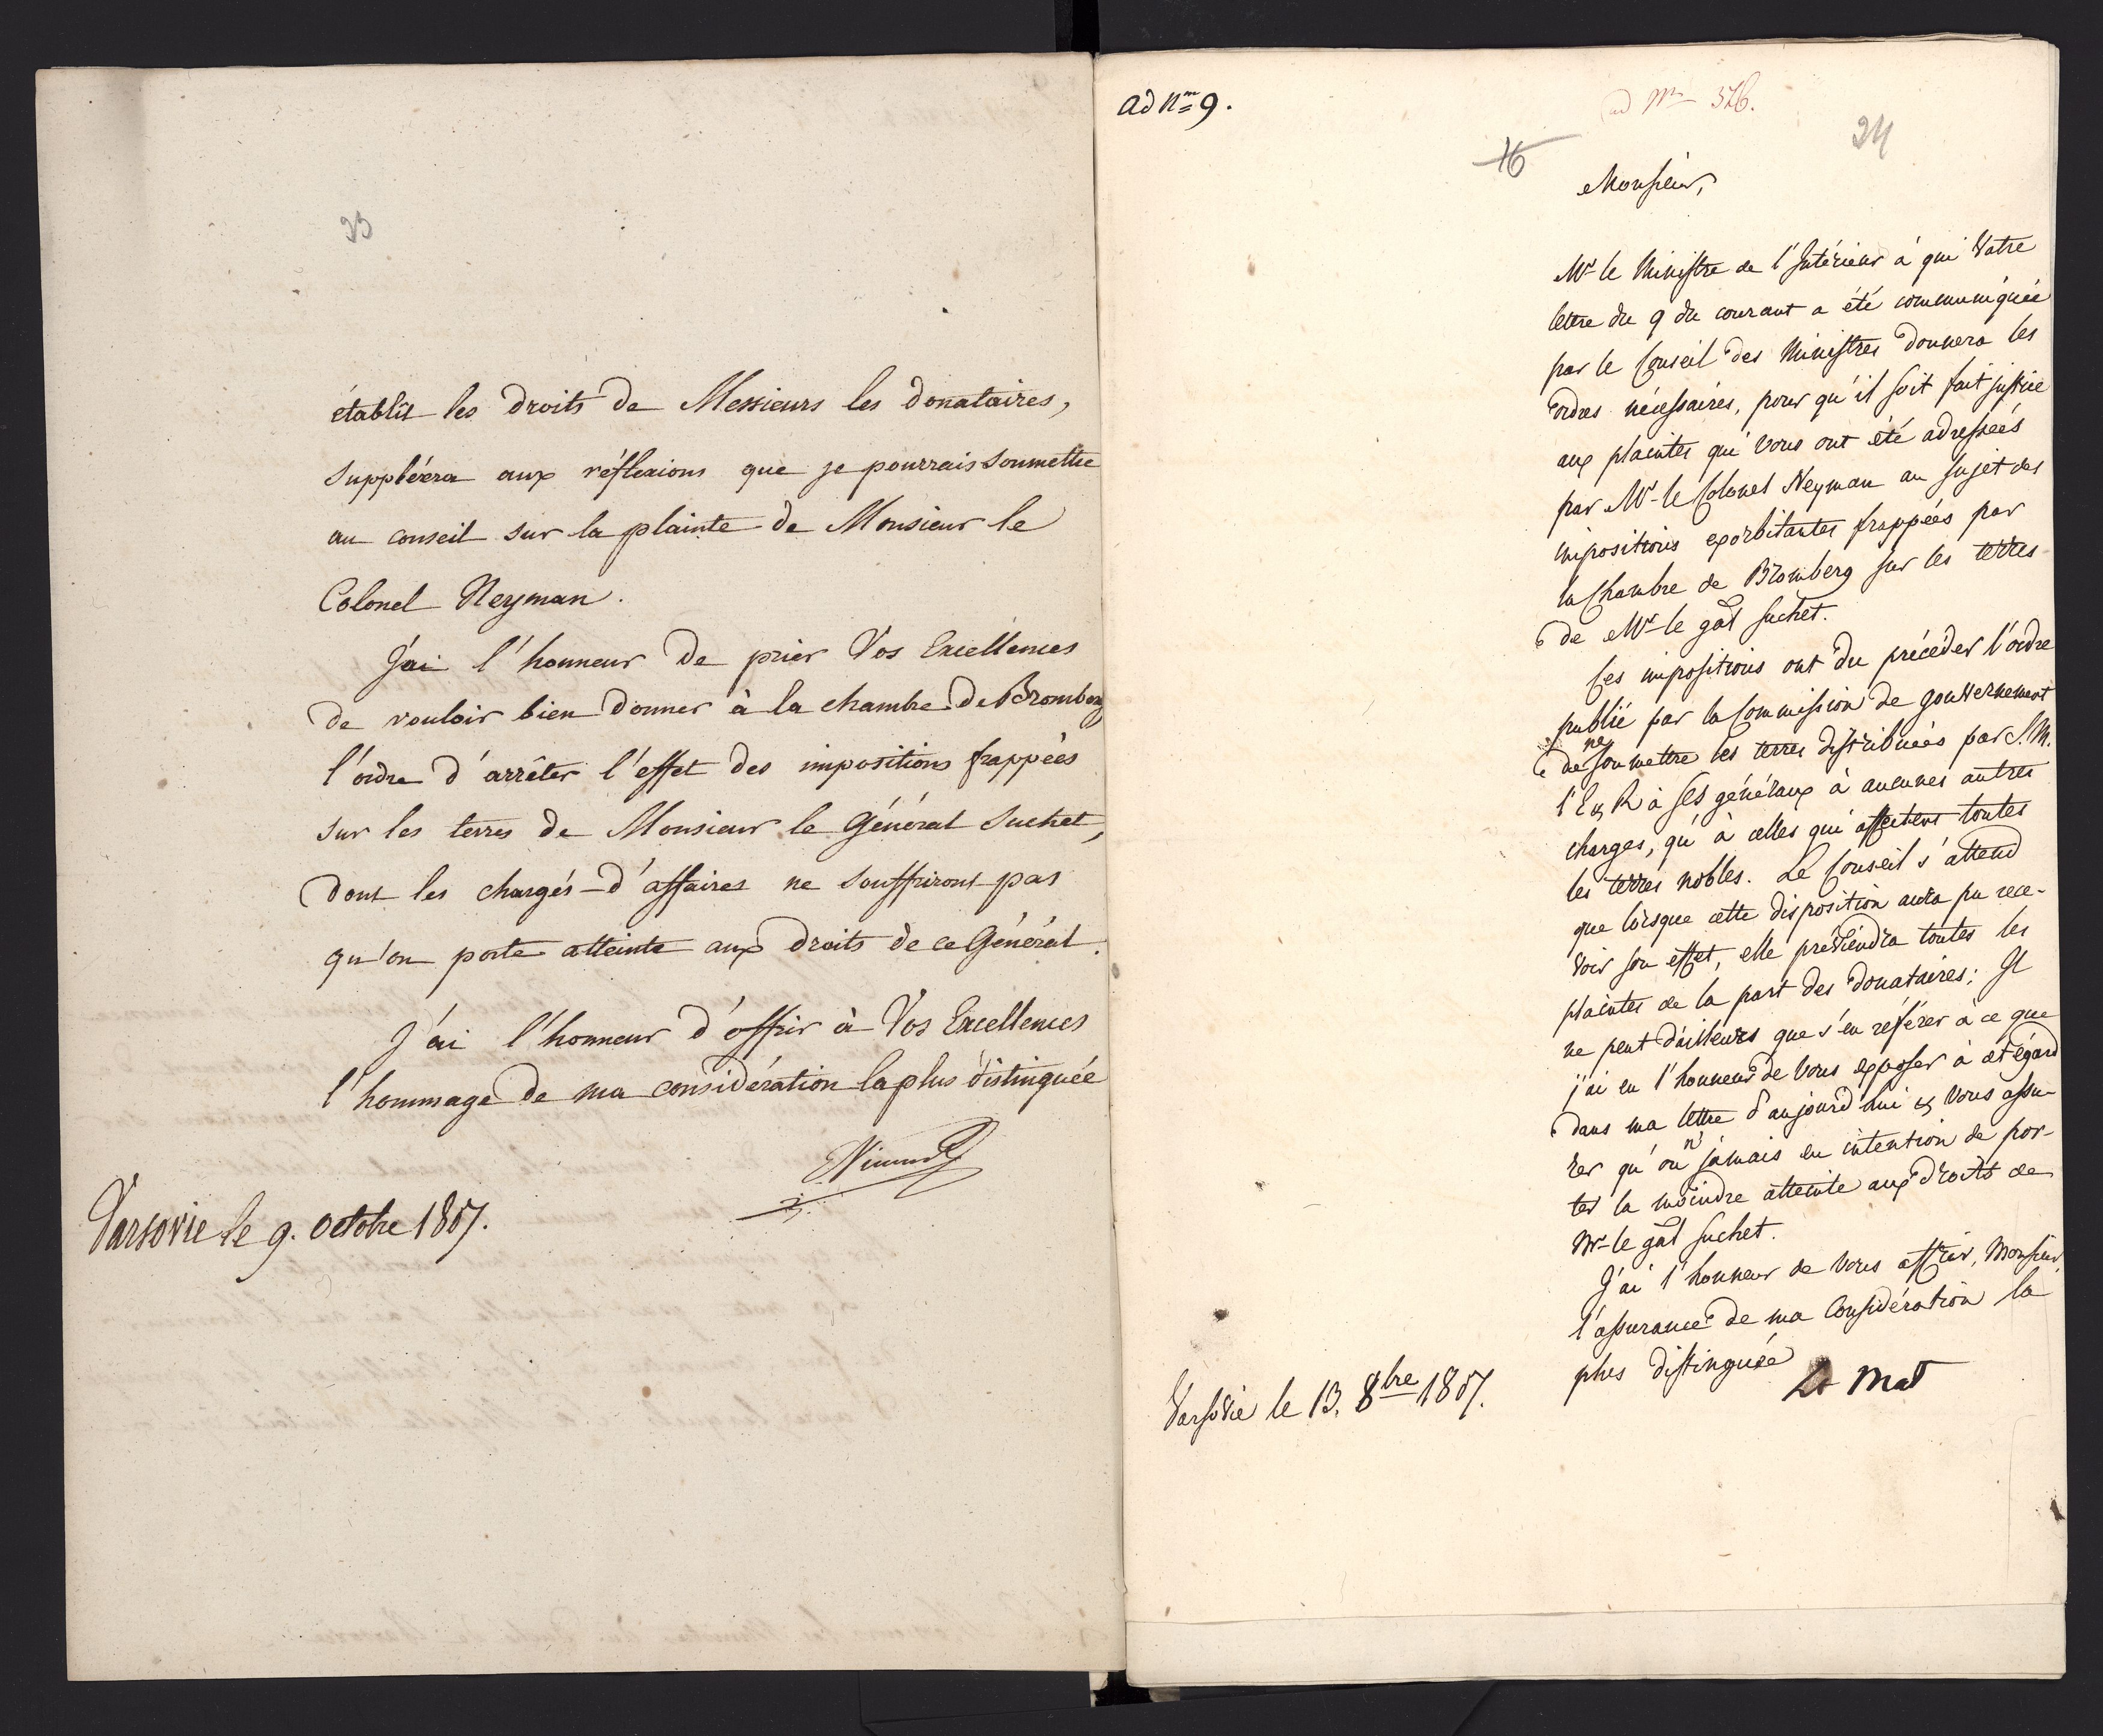 23
établit les droits de Messieurs les donataires,
suppléera aux réflexions que je pourrais soumettre
au conseil sur la plainte de Monsieur le
Colonel Neyman.
J'ai l'honneur de prier Vos Excellences
de vouloir bien donner à la chambre de Bromberg
l'ordre d'arrêter l'effet des impositions frappées
sur les terres de Monsieur le Général Suchet,
dont les chargés-d'affaires ne souffriront pas
qu'on porte atteinte aux droits de ce Général.
J'ai l'honneur d'offrir à Vos Excellences
l'hommage de ma considération la plus distinguée
Varsovie le 9. Octobre 1807.
ad Nm 9.
ad Nm 326.
16
24
Monsieur,
Mr le Ministre de l'Intérieur à qui Votre
lettre du 9 du courant a été communiquée
par le Conseil des Ministres donnera les
ordres nécessaires, pour qu'il soit fait justice
aux plaintes qui vous ont été adressées
par Mr le Colonel Neyman au sujet des
impositions exorbitantes frappées par
la Chambre de Bromberg sur les terres
de Mr le gal Suchet.
Ces impositions ont du précéder l'ordre
publié par la Commission de gouvernement
de ne soumettre les terres distribuées par S.M.
l'E & R à ses généraux à aucunes autres
charges, qu'à celles qui affectent toutes
les terres nobles. Le Conseil s'attend
que lorsque cette disposition aura pu rece-
voir son effet, elle préviendra toutes les
plaintes de la part des donataires; Il
ne peut d'ailleurs que s'en référer à ce que
j'ai eu l'honneur de vous exposer à cet égard
dans ma lettre d'aujourd'hui & vous assu-
rer qu'on n'jamais eu intention de por-
ter la moindre atteinte aux droits de
Mr le gal Suchet.
J'ai l'honneur de vous offrir, Monsieur,
l'assurance de ma Considération la
plus distinguée
Varsovie le 13. 8bre 1807.